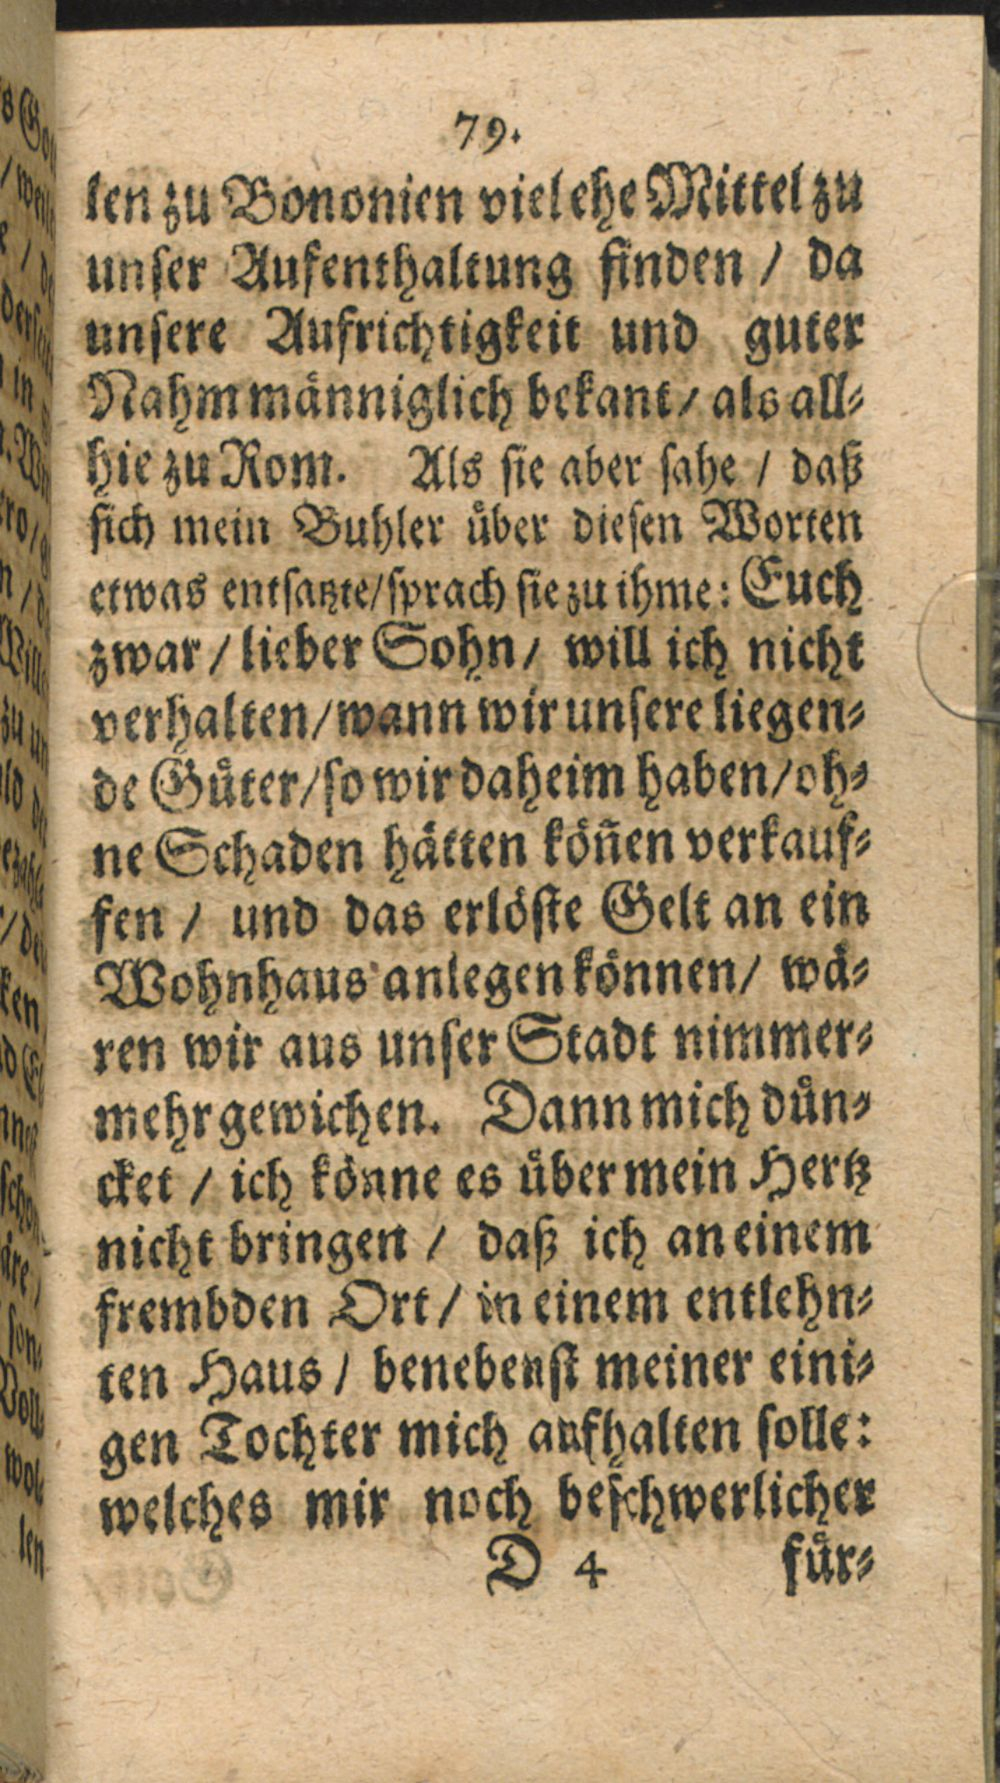 79.
len zu Bononien viel ehe Mittel zu
unser Aufenthaltung finden / da
unsere Aufrichtigkeit und guter
Nahm männiglich bekant / als all-
hie zu Rom. Als sie aber sahe / daß
sich mein Buhler über diesen Worten
etwas entsatzte / sprach sie zu ihme: Euch
zwar / lieber Sohn / will ich nicht
verhalten / wann wir unsere liegen-
de Güter / so wir daheim haben / oh-
ne Schaden hätten köñen verkauf-
fen / und das erlöste Gelt an ein
Wohnhaus anlegen können / wä-
ren wir aus unser Stadt nimmer-
mehr gewichen. Dann mich dün-
cket / ich könne es über mein Hertz
nicht bringen / daß ich an einem
frembden Ort / in einem entlehn-
ten Haus / benebenst meiner eini-
gen Tochter mich aufhalten solle:
welches mir noch beschwerlicher
D 4 für-